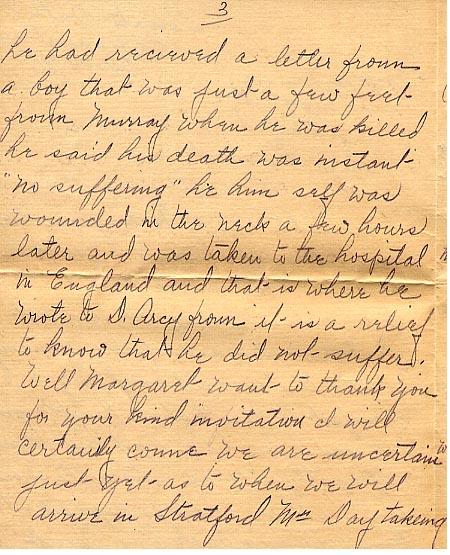 3
he had recieved a letter from
a boy that was just a few feet
from Murray when he was killed
he said his death was instant
"no suffering" he him self was
wounded in the neck a few hours
later and was taken to the hospital
in England and that is where he
wrote to D. Arcy from it is a relief
to know that he did not suffer.
Well Margaret want to thank you
for your kind invitation I will
certainly come we are uncertain
just yet as to when we will
arrive in Stratford Mrs Day takeing